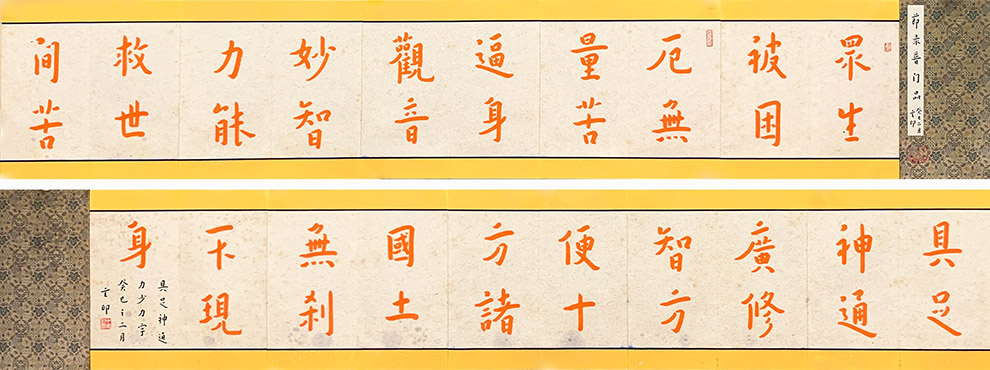 節录普门品
癸巳二月
眾生
被困
厄無
量苦
逼身
觀音
妙智
力能
救世
間苦
具足
神通
廣修
智方
便十
方諸
國土
無刹
不現
身
具足神通
力少力字
癸巳二月